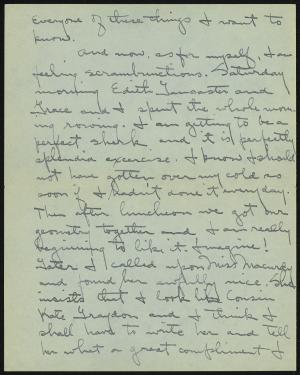 Everyone of these things I want to
know.
And now, as for myself, I am
feeling scrambunctious. Saturday
morning Edith Lancaster and
Grace and I spent the whole morn-
ing rowing. I am getting to be a
perfect shark and it is perfectly
splendid excercise. I know I should
not have gotten over my cold as
soon if I hadn't done it every day.
Then after luncheon we got our
geometry together and I am really
beginning to like it. Imagine!
Later I called upon Miss Macurdy
and found her awfully nice. She
insists that I look like Cousin
Kate Graydon and I think I
shall have to write her and tell
her what a great compliment I